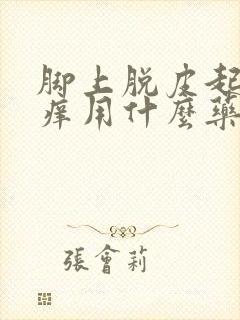 脚上脱皮起
痒用什麼藥
張會莉